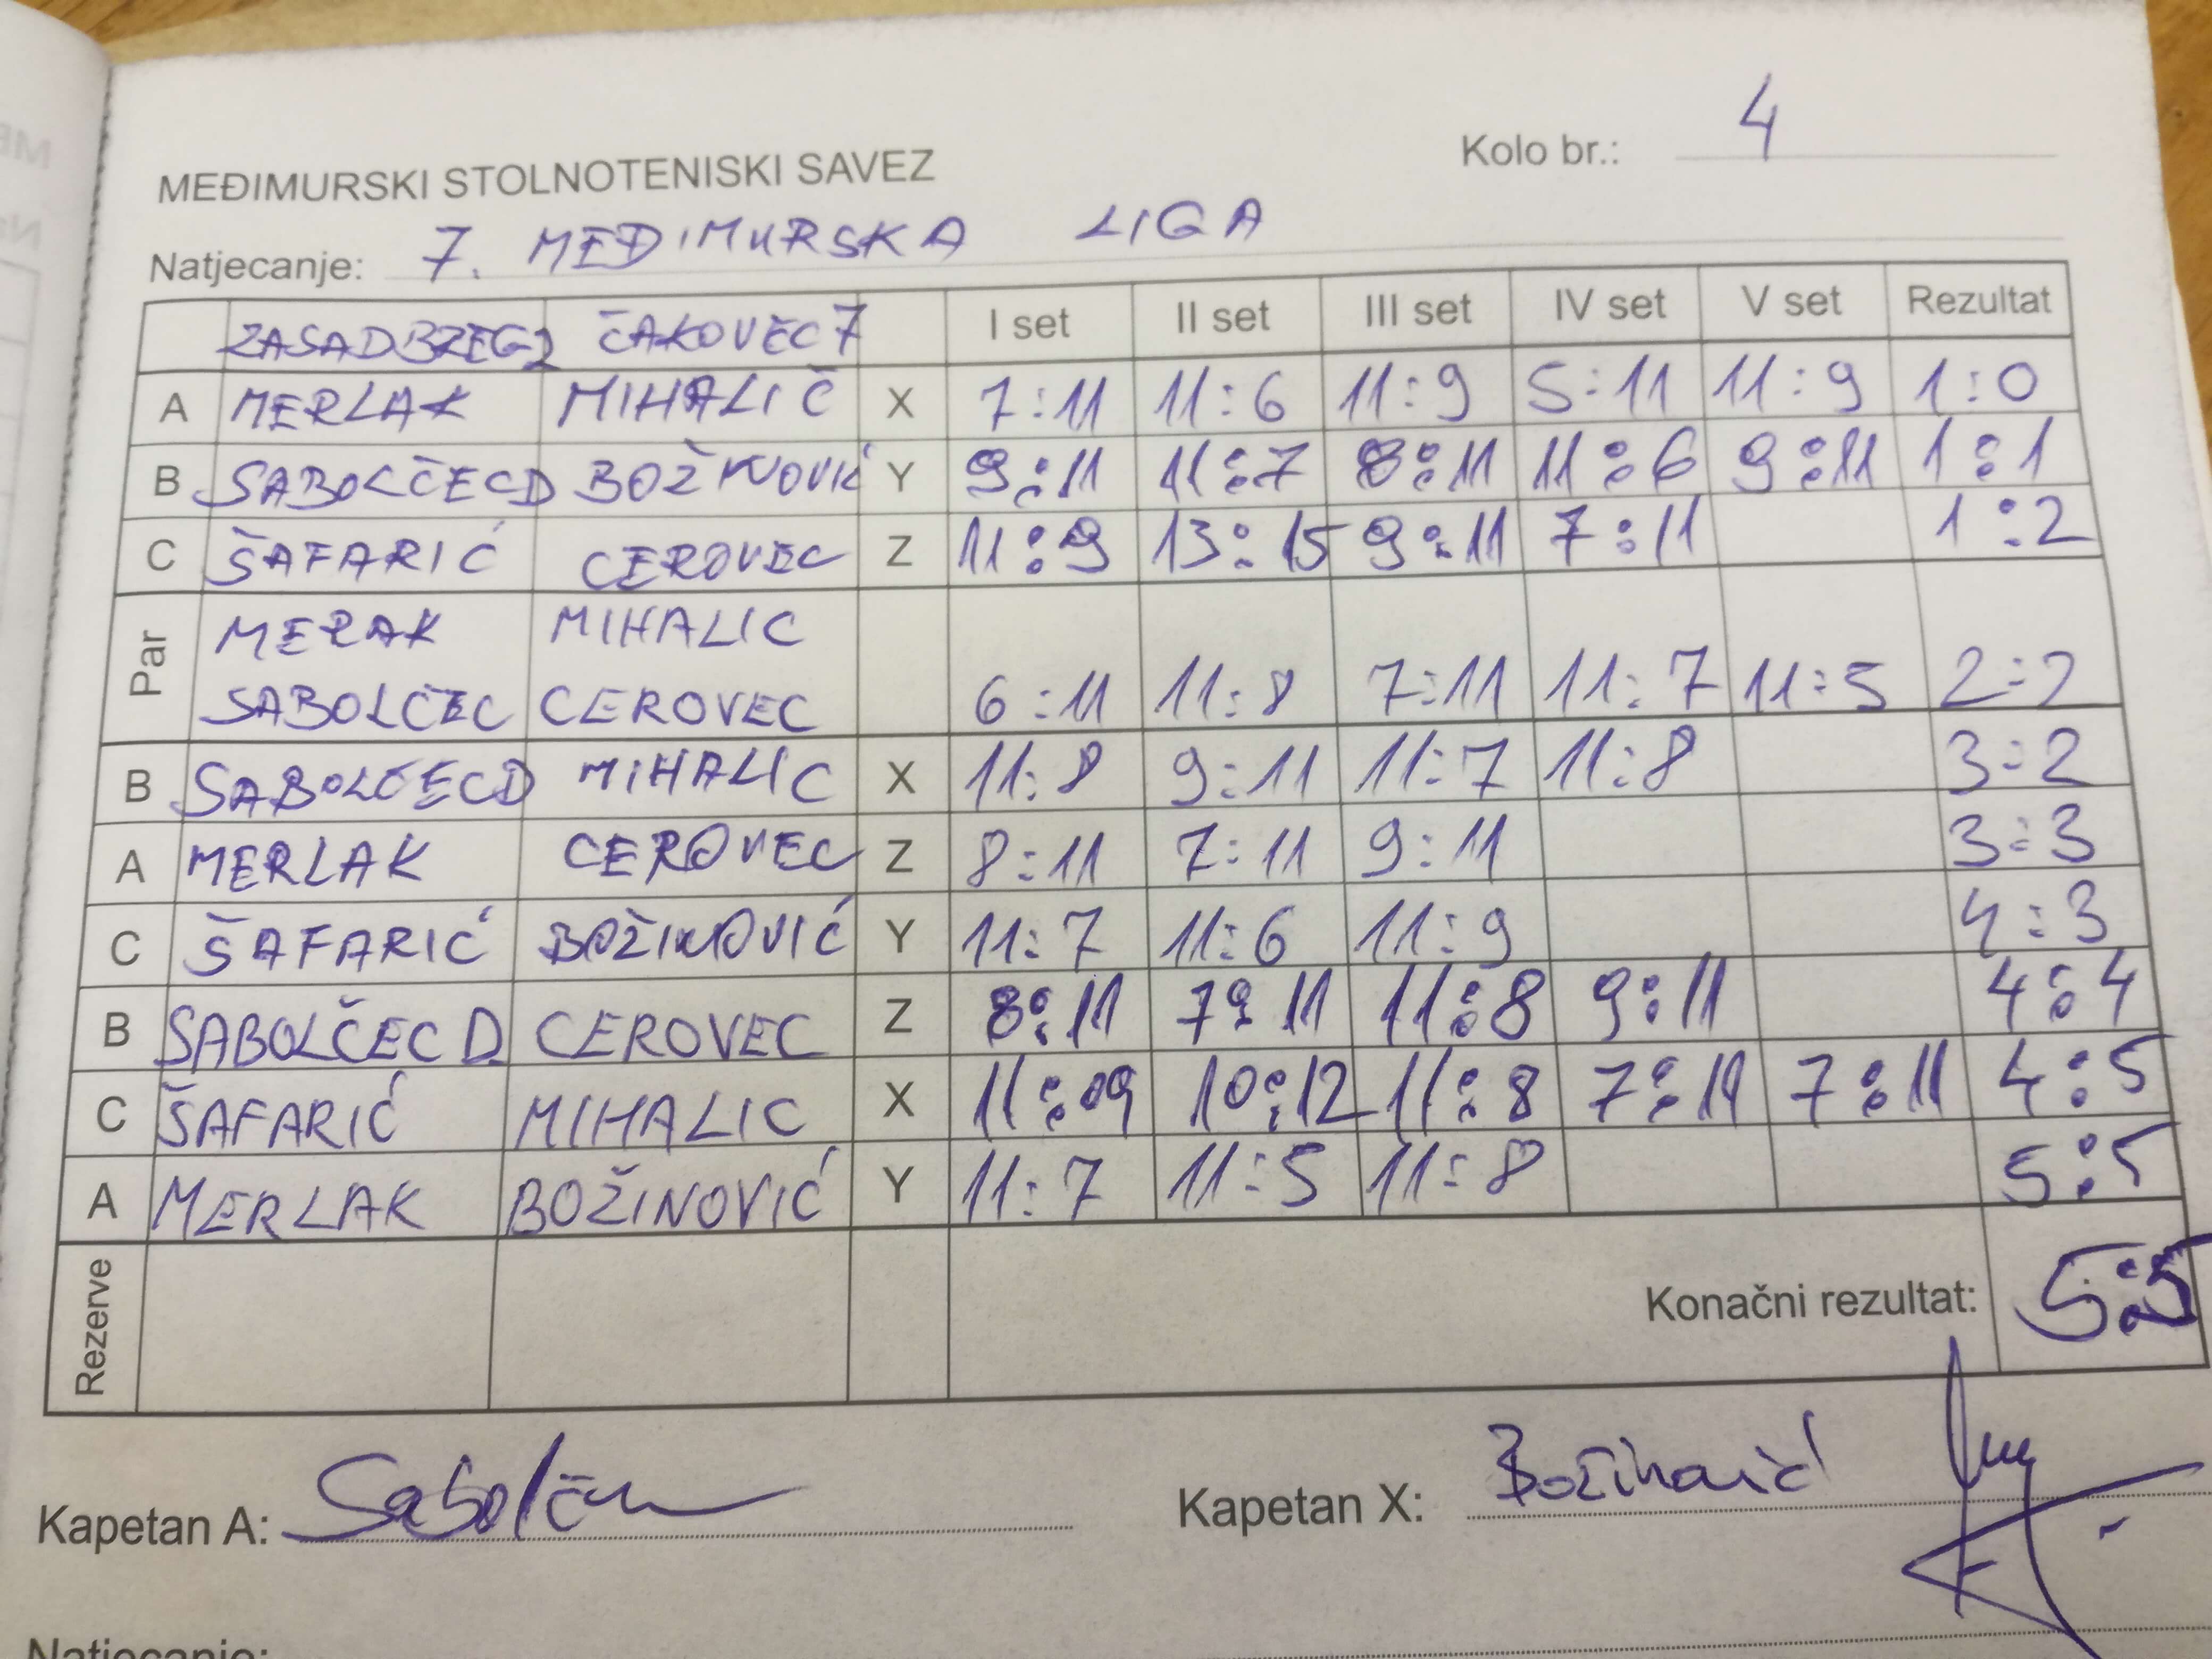 MEĐIMURSKI STOLNOTENISKI SAVEZ
Kolo br.: 4
Natjecanje: 7. MEĐIMURSKA LIGA
ZASADBREG 2 ČAKOVEC 7 I set II set III set IV set V set Rezultat
A MERLAK MIHALIČ X 7:11 11:6 11:9 5:11 11:9 1:0
B SABOLČEC D BOŽINOVIĆ Y 9:11 11:7 8:11 11:6 9:11 1:1
C ŠAFARIĆ CEROVEC Z 11:9 13:15 9:11 7:11 1:2
Par MERAK MIHALIC
SABOLČEC CEROVEC 6:11 11:8 7:11 11:7 11:5 2:2
B SABOLČEC D MIHALIC X 11:8 9:11 11:7 11:8 3:2
A MERLAK CEROVEC Z 8:11 7:11 9:11 3:3
C ŠAFARIĆ BOŽINOVIĆ Y 11:7 11:6 11:9 4:3
B SABOLČEC D CEROVEC Z 8:11 7:11 11:8 9:11 4:4
C ŠAFARIĆ MIHALIC X 11:09 10:12 11:8 7:11 7:11 4:5
A MERLAK BOŽINOVIĆ Y 11:7 11:5 11:8 5:5
Rezerve Konačni rezultat: 5:5
Kapetan A: Sabolčec Kapetan X: Božinović
Natjecanje: